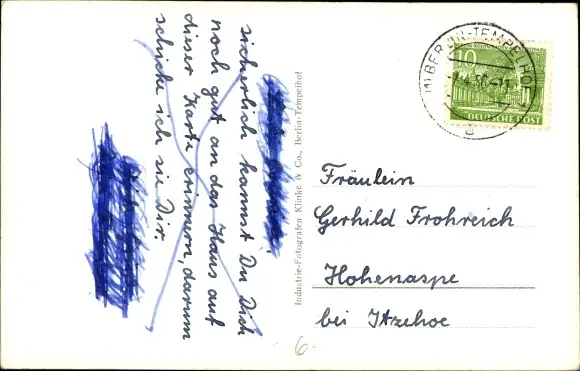 sicherlich kannst Du Dich
noch gut an das Haus auf
dieser Karte erinnern, darum
schicke ich sie Dir.
Industrie-Fotografen Klinke & Co., Berlin-Tempelhof
(1) BERLIN-TEMPELHOF
a
10
DEUTSCHE POST
Fräulein
Gerhild Frohreich
Hohenaspe
bei Itzehoe
6.